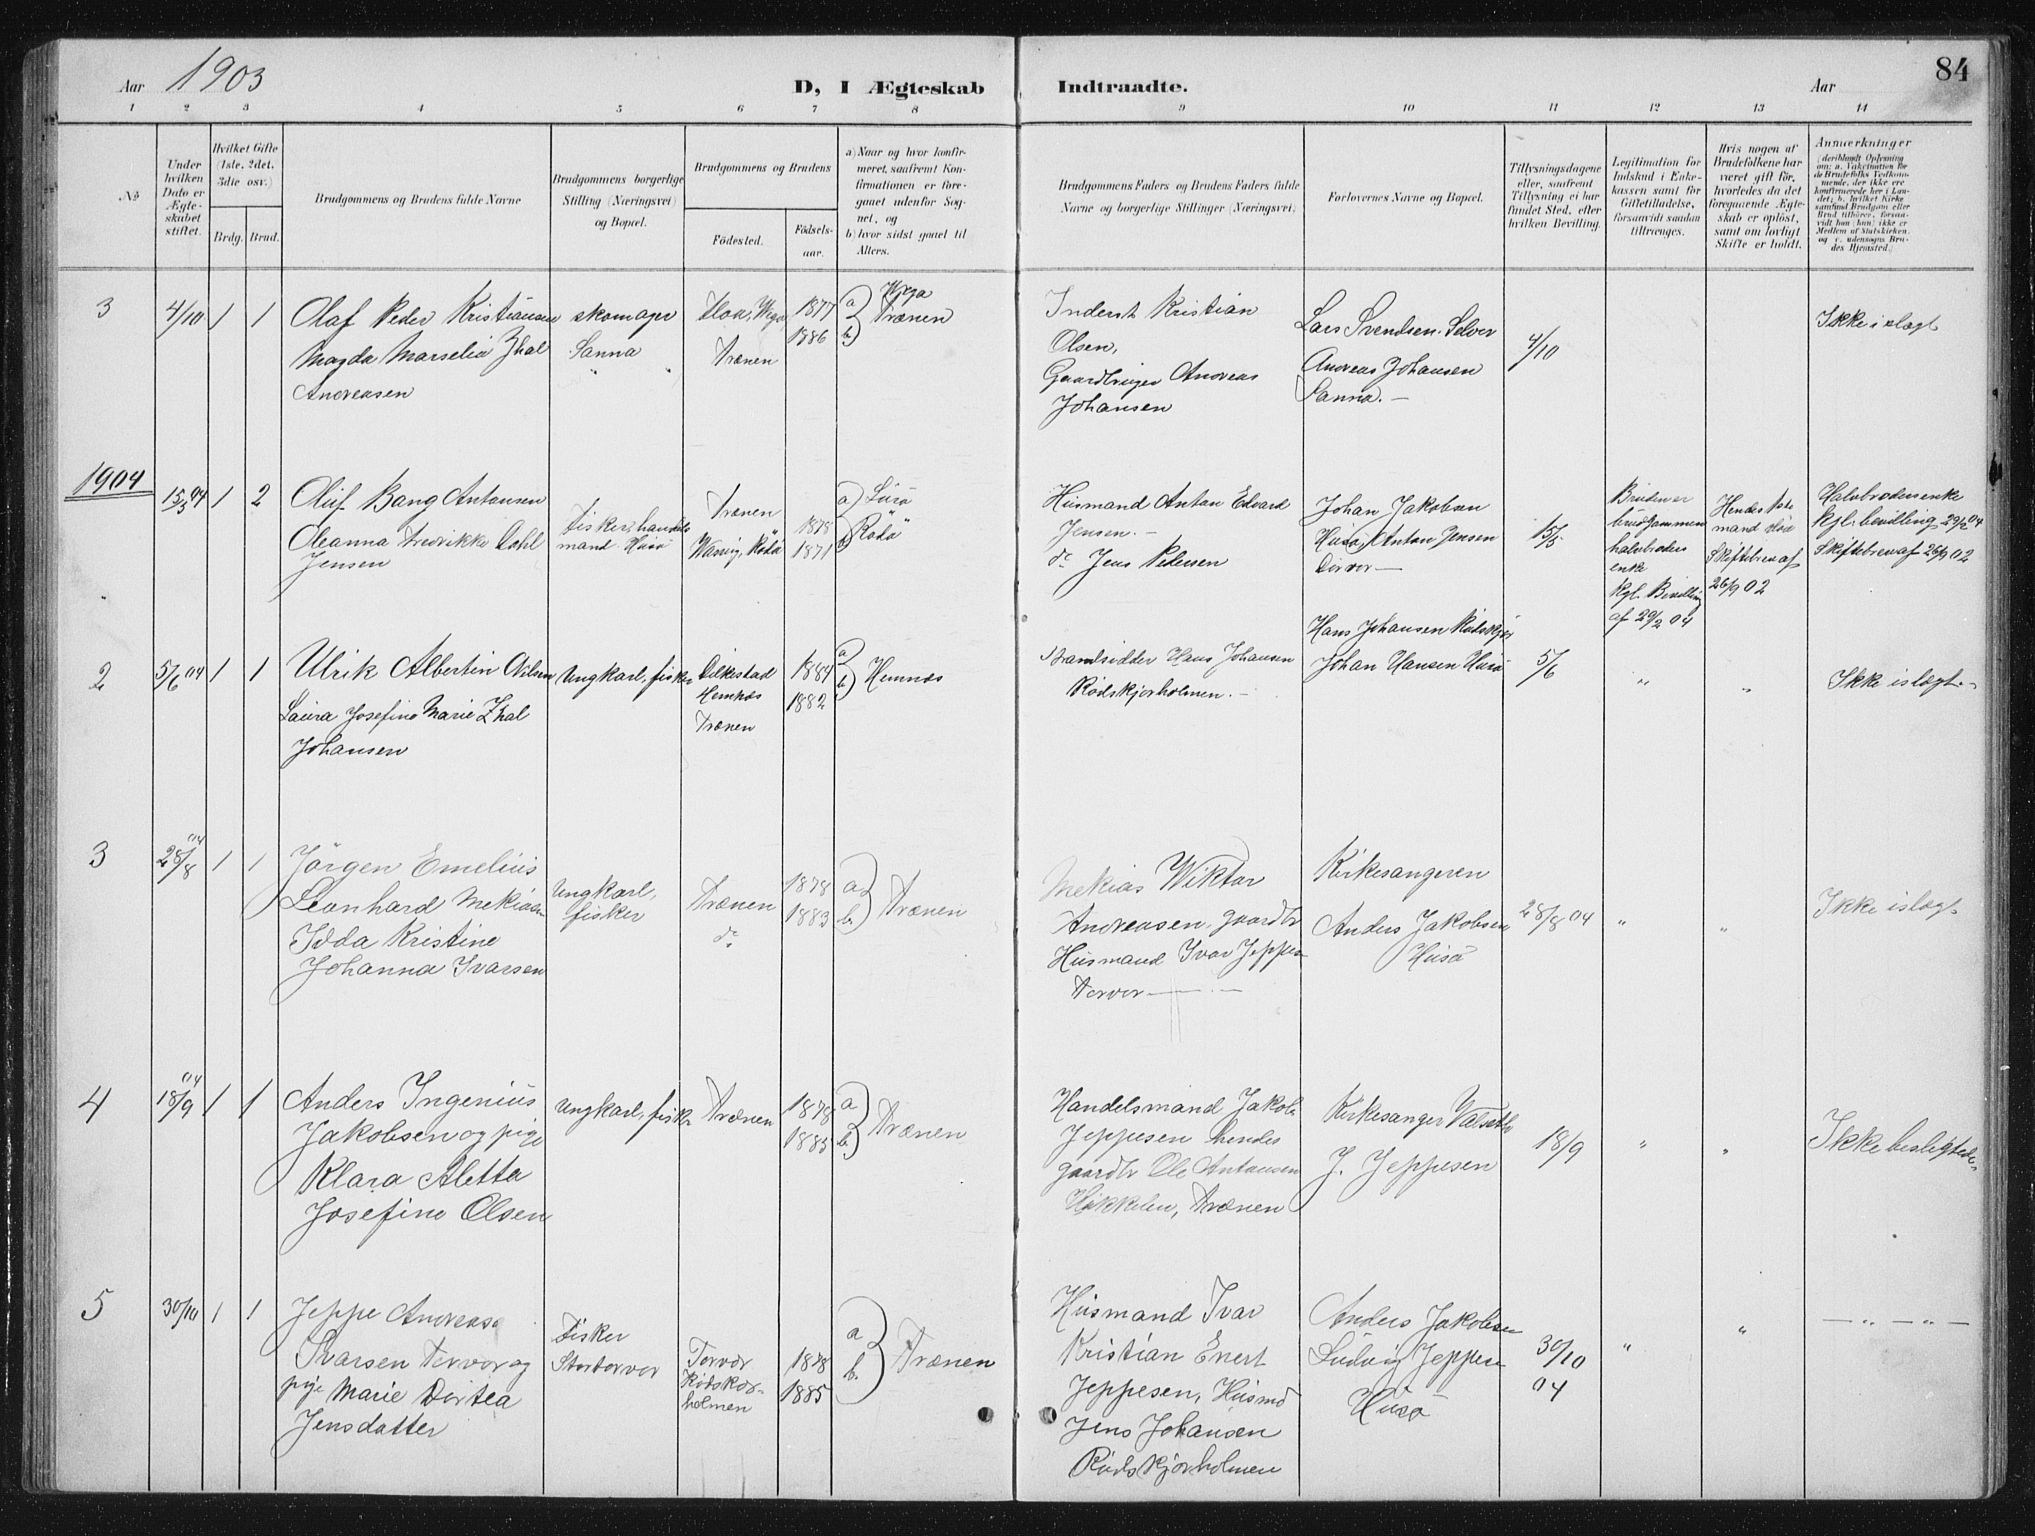 Aar 1903
D, I Ægteskab Indtraadte.
Aar
84
1 2 3 4 5 6 7 8 9 10 11 12 13 14
No.
Under hvilken Dato er Ægteskabet stiftet.
Hvilket Gifte (1ste, 2det, 3die osv.)
Brdg. Brud.
Brudgommens og Brudens fulde Navne
Brudgommens borgerlige Stilling (Næringsvei) og Bopæl.
Brudgommens og Brudens
Fødested.
Fødselsaar.
a) Naar og hvor konfirmeret, saafremt Konfirmationen er foregaaet udenfor Sognet, og
b) hvor sidst gaaet til Alters.
Brudgommens Faders og Brudens Faders fulde Navne og borgerlige Stillinger (Næringsvei)
Forlovernes Navne og Bopæl.
Tillysningsdagene eller, saafremt Tillysning ei har fundet Sted, efter hvilken Bevilling.
Legitimation for Indskud i Enkekassen samt for Giftetilladelse, forsaavidt saadan tiltrænges.
Hvis nogen af Brudefolkene har været gift før, hvorledes da det foregaaende Ægteskab er opløst, samt om lovligt Skifte er holdt.
Anmærkninger
3
4/10
1 1
Olaf Peder Kristiansen
Magda Marselia Zhal
Andreasen
skomager
Sanna
Wega
Trænen
1877
1886
a
b)
Wega
Trænen
Kristian
Olsen,
Gaardbruger Andreas
Johansen
Lars Svendsen. Selver
Andreas Johansen
Sanna. —
4/10
Ikke i slægt
1904
15/3 04
1 2
Oluf Bang Antonsen
Oleanna Fredrikke Dahl
Jensen
Fisker, handels
mand. Husø
Trænen
Rødø
1878
1871
a) Lurø
b) Rødø
Husmand Anton Edvard
Jensen. —
do Jens Pedersen
Johan Jakobsen
Husø, Anton Jensen
Dørvær —
15/3
Bruden er
brudgommens
halvbroders
enke
Kgl. Bevilling
af 29/2 04
Hendes
mand
Skiftebrev af
26/9 02
Halvbrodersenke
kgl. bevilling 29/2 04
Skiftebrev af 26/9 02
2
5/6 04
1 1
Ulrik Albertin Nilsen
Laura Josefine Marie Zhal
Johansen
Ungkarl, fisker
Hemnes
Trænen
1884
1882
a
b) Hemnæs
Strandsidder Hans Johansen
Rødskjærholmen. —
Hans Johansen Rødskjær
Johan Hansen Husø
5/6
"
"
Ikke i slægt. —
3
28/8 04
1 1
Jørgen Emelius
Leonhard Mekiasen
Idda Kristine
Johanna Ivarsen
Ungkarl,
fisker
Trænen
do
1878
1883
a
b. Trænen
Mekias Wiktor
Andreasen, gaardbr
Husmand Ivar Jeppesen
Torvær — —
Kirkesangeren
Anders Jakobsen
Husø
28/8 04
"
"
Ikke i slægt
4
18/9 04
1 1
Anders Ingenius
Jakobsen og pige
Klara Aletta
Josefine Olsen
Ungkarl, fisker
Trænen
1878
1885
a
b. Trænen
Handelsmand Jakob
Jeppesen hendes
gaardbr Ole Antonsen
Hikkelen, Trænen
Kirkesanger
J. Jeppesen
18/9
"
"
Ikke beslægtede
5
30/10
1 1
Jeppe Andreas
Ivarsen Torvær og
pige Marie Dortea
Jensdatter
Fisker
Stortorvær
Torvær
Rødskær-
holmen
1878
1885
a
b. Trænen
Husmand Ivar
Kristian Enert
Jeppesen, Husmd
Jens Johansen
Rødskjærholmen
Anders Jakobsen
Ludvig Jeppesen
Husø
30/10
04
"
"
— " — " —